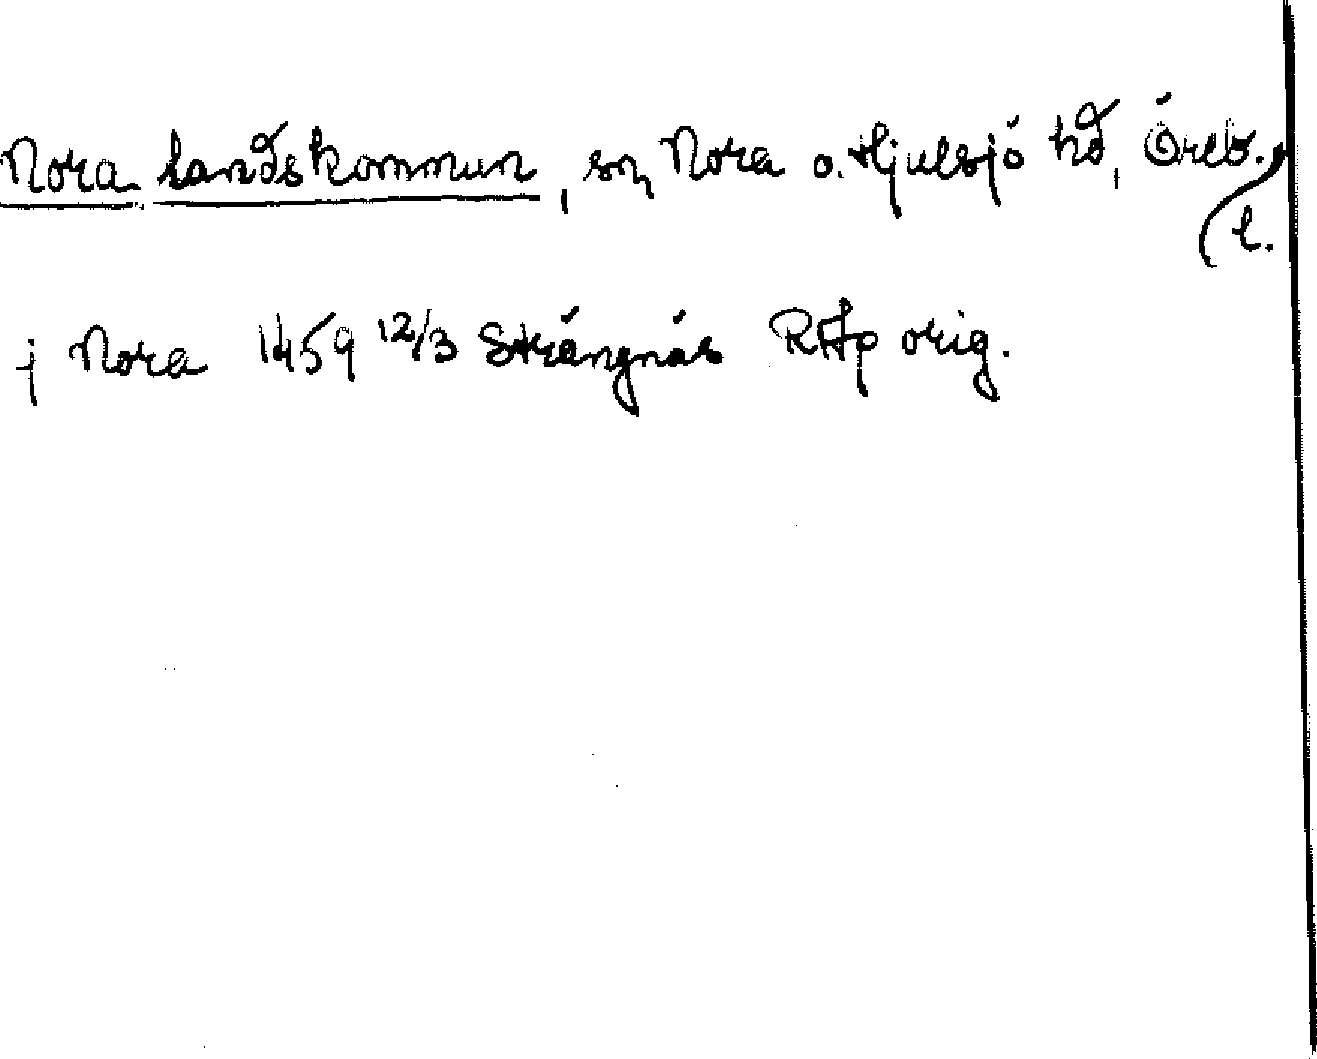 Nora landskommun, sn, Nora o. Hjulsjö hd, Öreb.
l.
j Nora 1459 12/3 Strängnäs RAp orig.